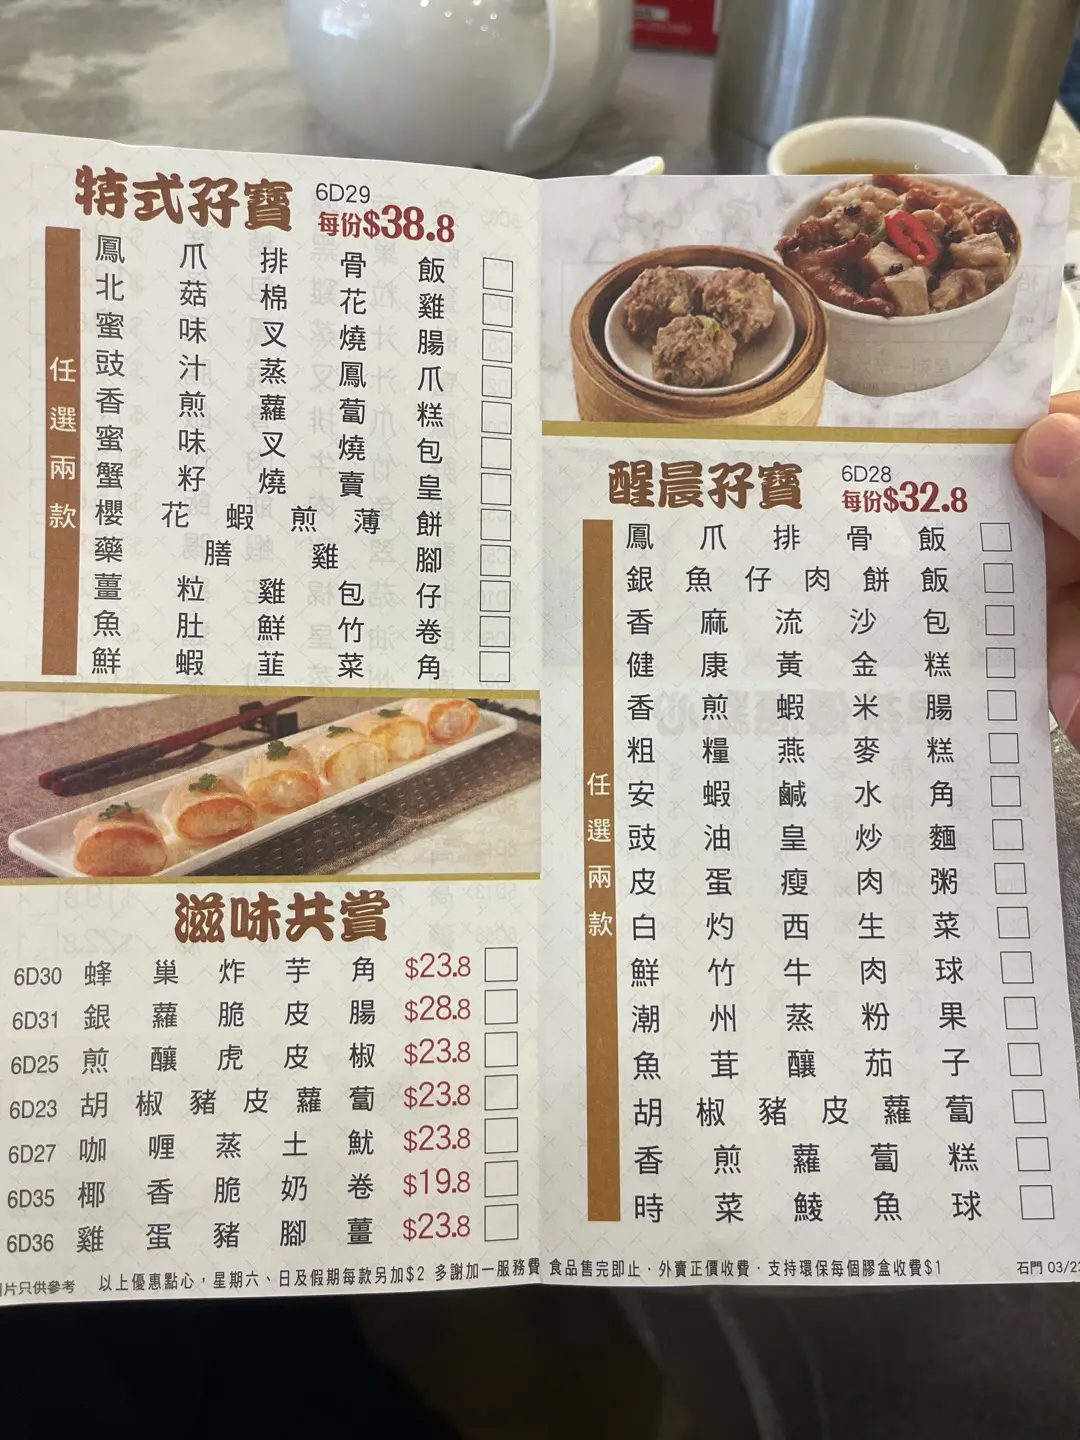 特式孖寶 6D29
每份$38.8
任選兩款
鳳爪排骨飯
北菇棉花雞
蜜味叉燒腸
豉汁蒸鳳爪
香煎蘿蔔糕
蜜味叉燒包
蟹籽燒賣皇
櫻花蝦煎薄餅
藥膳雞腳
薑粒雞包仔
魚肚鮮竹卷
鮮蝦韮菜角
滋味共賞
6D30 蜂巢炸芋角 $23.8
6D31 銀蘿脆皮腸 $28.8
6D25 煎釀虎皮椒 $23.8
6D23 胡椒豬皮蘿蔔 $23.8
6D27 咖喱蒸土魷 $23.8
6D35 椰香脆奶卷 $19.8
6D36 雞蛋豬腳薑 $23.8
醒晨孖寶 6D28
每份$32.8
任選兩款
鳳爪排骨飯
銀魚仔肉餅飯
香麻流沙包
健康黃金糕
香煎蝦米腸
粗糧燕麥糕
安蝦鹹水角
豉油皇炒麵
皮蛋瘦肉粥
白灼西生菜
鮮竹牛肉球
潮州蒸粉果
魚茸釀茄子
胡椒豬皮蘿蔔
香煎蘿蔔糕
時菜鯪魚球
片只供參考 以上優惠點心，星期六、日及假期每款另加$2 多謝加一服務費 食品售完即止．外賣正價收費．支持環保每個膠盒收費$1 石門 03/23